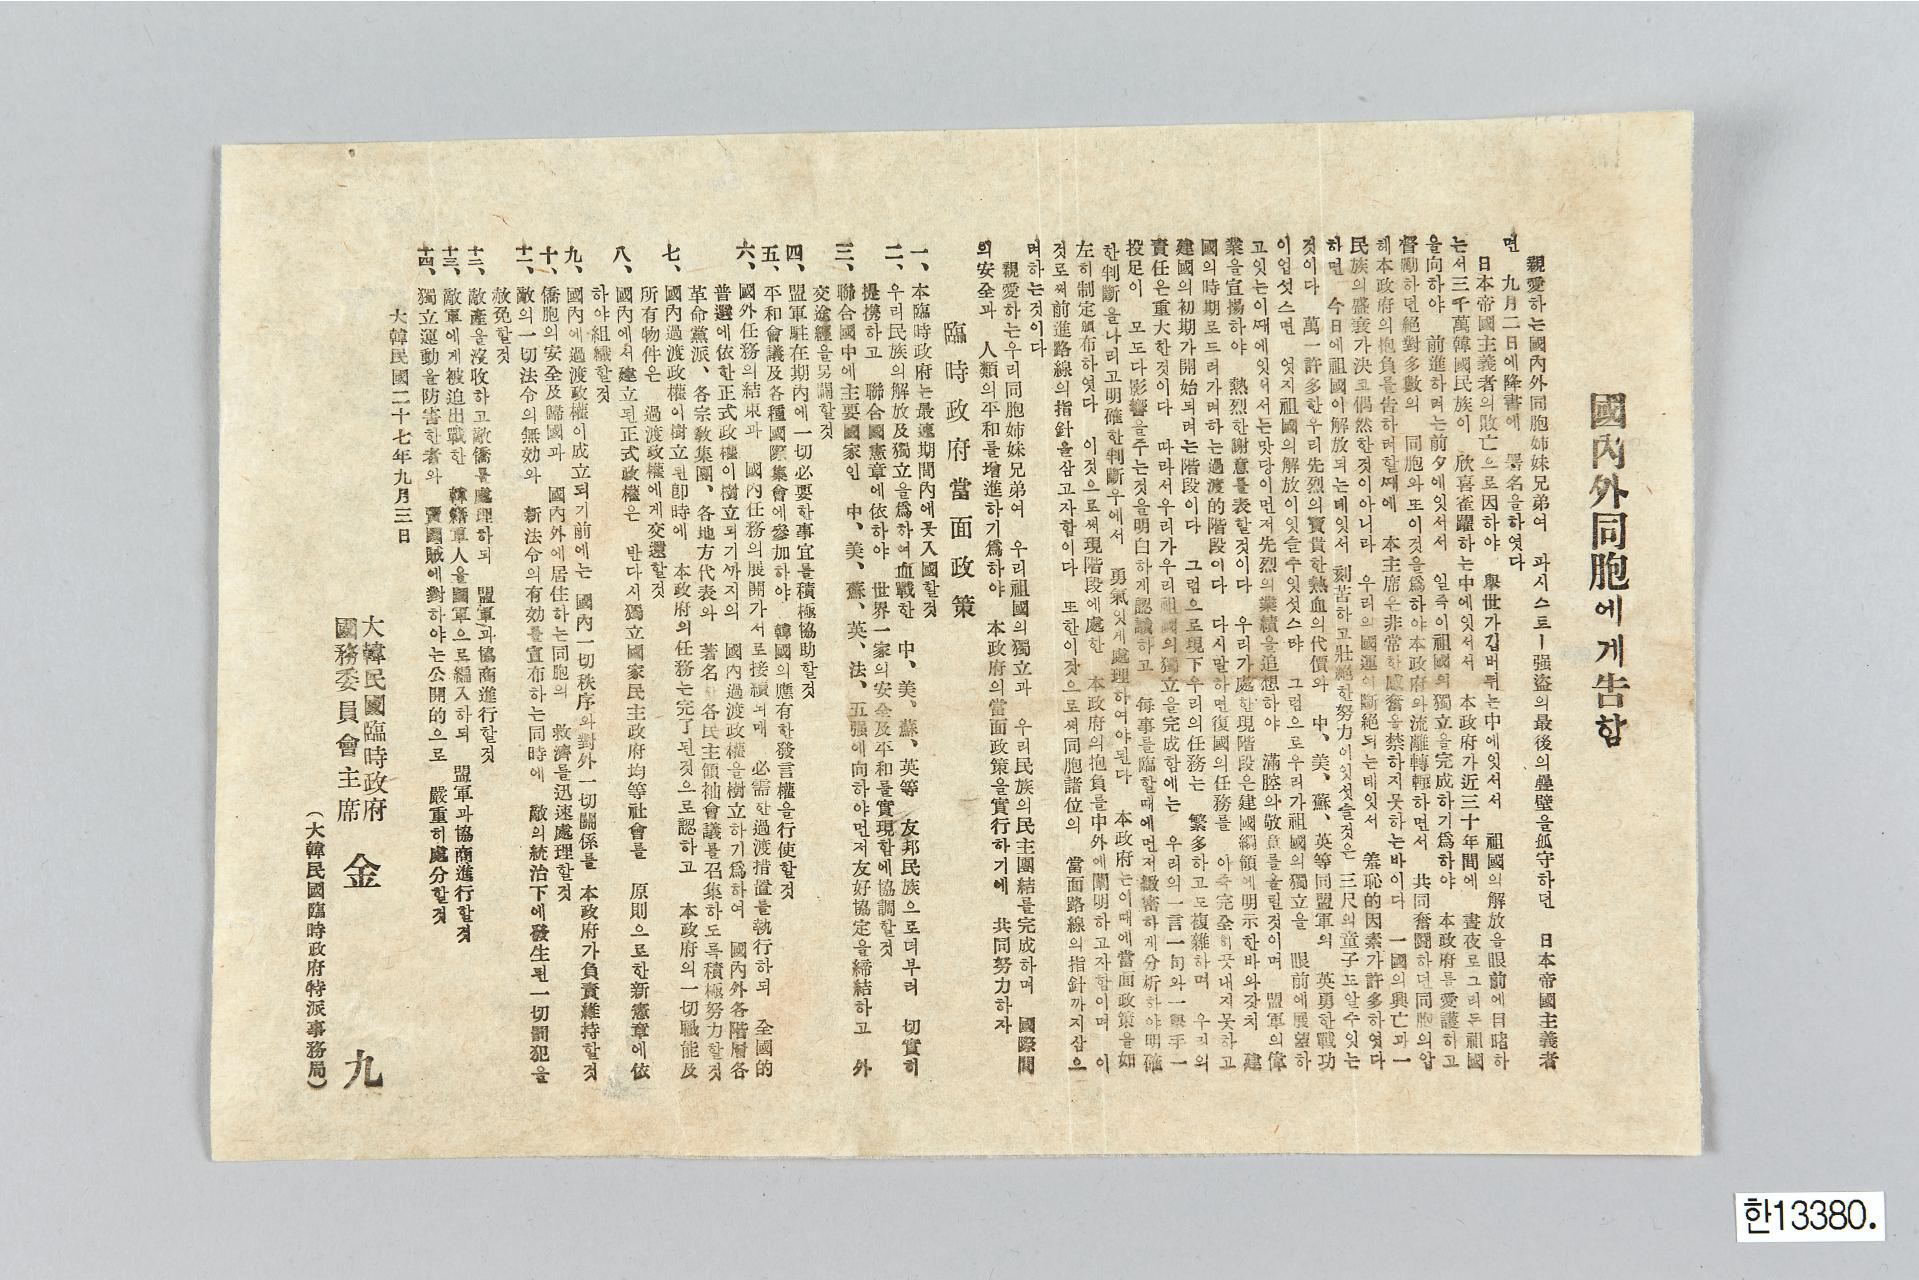 國內外同胞에게告함
親愛하는國內外同胞姉妹兄弟여 파시스트ー强盜의最後의壘壁을孤守하던 日本帝國主義者
면 九月二日에降書에 署名을하엿다
日本帝國主義者의敗亡으로因하야 擧世가깁버뛰는中에잇서서 祖國의解放을眼前에目睹하
는서三千萬韓國民族이 欣喜雀躍하는中에잇서서 本政府가近三十年間에 晝夜로그리든祖國
을向하야 前進하려는前夕에잇서서 일즉이祖國의獨立을完成하기爲하야 本政府를愛護하고
督勵하던絕對多數의 同胞와또이것을爲하야本政府와流離轉輾하면서 共同奮鬪하던同胞의압
헤本政府의抱負를告하려할때에 本主席은非常한感奮을禁하지못하는바이다 一國의興亡과一
民族의盛衰가決코偶然한것이아니라 우리의國運이斷絕되는데잇서 羞恥的因素가許多하엿다
하면 今日에祖國이解放되는데잇서 刻苦하고壯絕한努力이잇섯슬것은 三尺의童子도알수잇는
것이다 萬一許多한우리先烈의寶貴한熱血의代價와 中、美、蘇、英等同盟軍의 英勇한戰功
이업섯스면 엇지祖國의解放이잇슬수잇섯스랴 그럼으로우리가祖國의獨立을 眼前에展望하
고잇는이때에잇서서는맛당이먼저先烈의業績을追想하야 滿腔의敬意를올릴것이며 盟軍의偉
業을宣揚하야 熱烈한謝意를表할것이다 우리가處한現階段은建國綱領에明示한바와갓치 建
國의時期로드러가려하는過渡的階段이다 다시말하면復國의任務를 아즉完全히끗내지못하고
建國의初期가開始되려는階段이다 그럼으로現下우리의任務는 繁多하고도複雜하며 우리의
責任은重大한것이다 따라서우리가우리祖國의獨立을完成함에는 우리의一言一句와一擧手一
投足이 모도다影響을주는것을明白하게認識하고 每事를臨할때에먼저緻密하게分析하야明確
한判斷을나리고明確한判斷우에서 勇氣잇게處理하여야된다 本政府는이때에當面政策을如
左히制定頒布하엿다 이것으로써現階段에處한 本政府의抱負를中外에闡明하고자함이며 이
것으로써前進路線의指針을삼고자함이다 또한이것으로써同胞諸位의 當面路線의指針까지삼으
려하는것이다
親愛하는우리同胞姉妹兄弟여 우리祖國의獨立과 우리民族의民主團結를完成하며 國際間
의安全과 人類의平和를增進하기爲하야 本政府의當面政策을實行하기에 共同努力하자
臨時政府當面政策
一、本臨時政府는最速期間內에곳入國할것
二、우리民族의解放及獨立을爲하여血戰한 中、美、蘇、英等 友邦民族으로더부러 切實히
提携하고 聯合國憲章에依하야 世界一家의安全及平和를實現함에協調할것
三、聯合國中에主要國家인 中、美、蘇、英、法、五强에向하야먼저友好協定을締結하고 外
交途經을另闢할것
四、盟軍駐在期內에一切必要한事宜를積極協助할것
五、平和會議及各種國際集會에參加하야 韓國의應有한發言權을行使할것
六、國外任務의結束과 國內任務의展開가서로接續되매 必需한過渡措置를執行하되 全國的
普選에依한正式政權이樹立되기까지의 國內過渡政權을樹立하기爲하여 國內外各階層各
革命黨派、各宗敎集團、各地方代表와 著名한各民主領袖會議를召集하도록積極努力할것
七、國內過渡政權이樹立된卽時에 本政府의任務는完了된것으로認하고 本政府의一切職能及
所有物件은 過渡政權에게交還할것
八、國內에서建立된正式政權은 반다시獨立國家民主政府均等社會를 原則으로한新憲章에依
하야組織할것
九、國內에過渡政權이成立되기前에는 國內一切秩序와對外一切關係를 本政府가負責維持할것
十、僑胞의安全及歸國과 國內外에居住하는同胞의 救濟를迅速處理할것
十一、敵의一切法令의無効와 新法令의有効를宣布하는同時에 敵의統治下에發生된一切罰犯을
赦免할것
十二、敵產을沒收하고敵僑를處理하되 盟軍과協商進行할것
十三、敵軍에게被迫出戰한 韓籍軍人을國軍으로編入하되 盟軍과協商進行할것
十四、獨立運動을防害한者와 賣國賊에對하야는公開的으로 嚴重히處分할것
大韓民國二十七年九月三日
大韓民國臨時政府
國務委員會主席 金九
(大韓民國臨時政府特派事務局)
한13380.